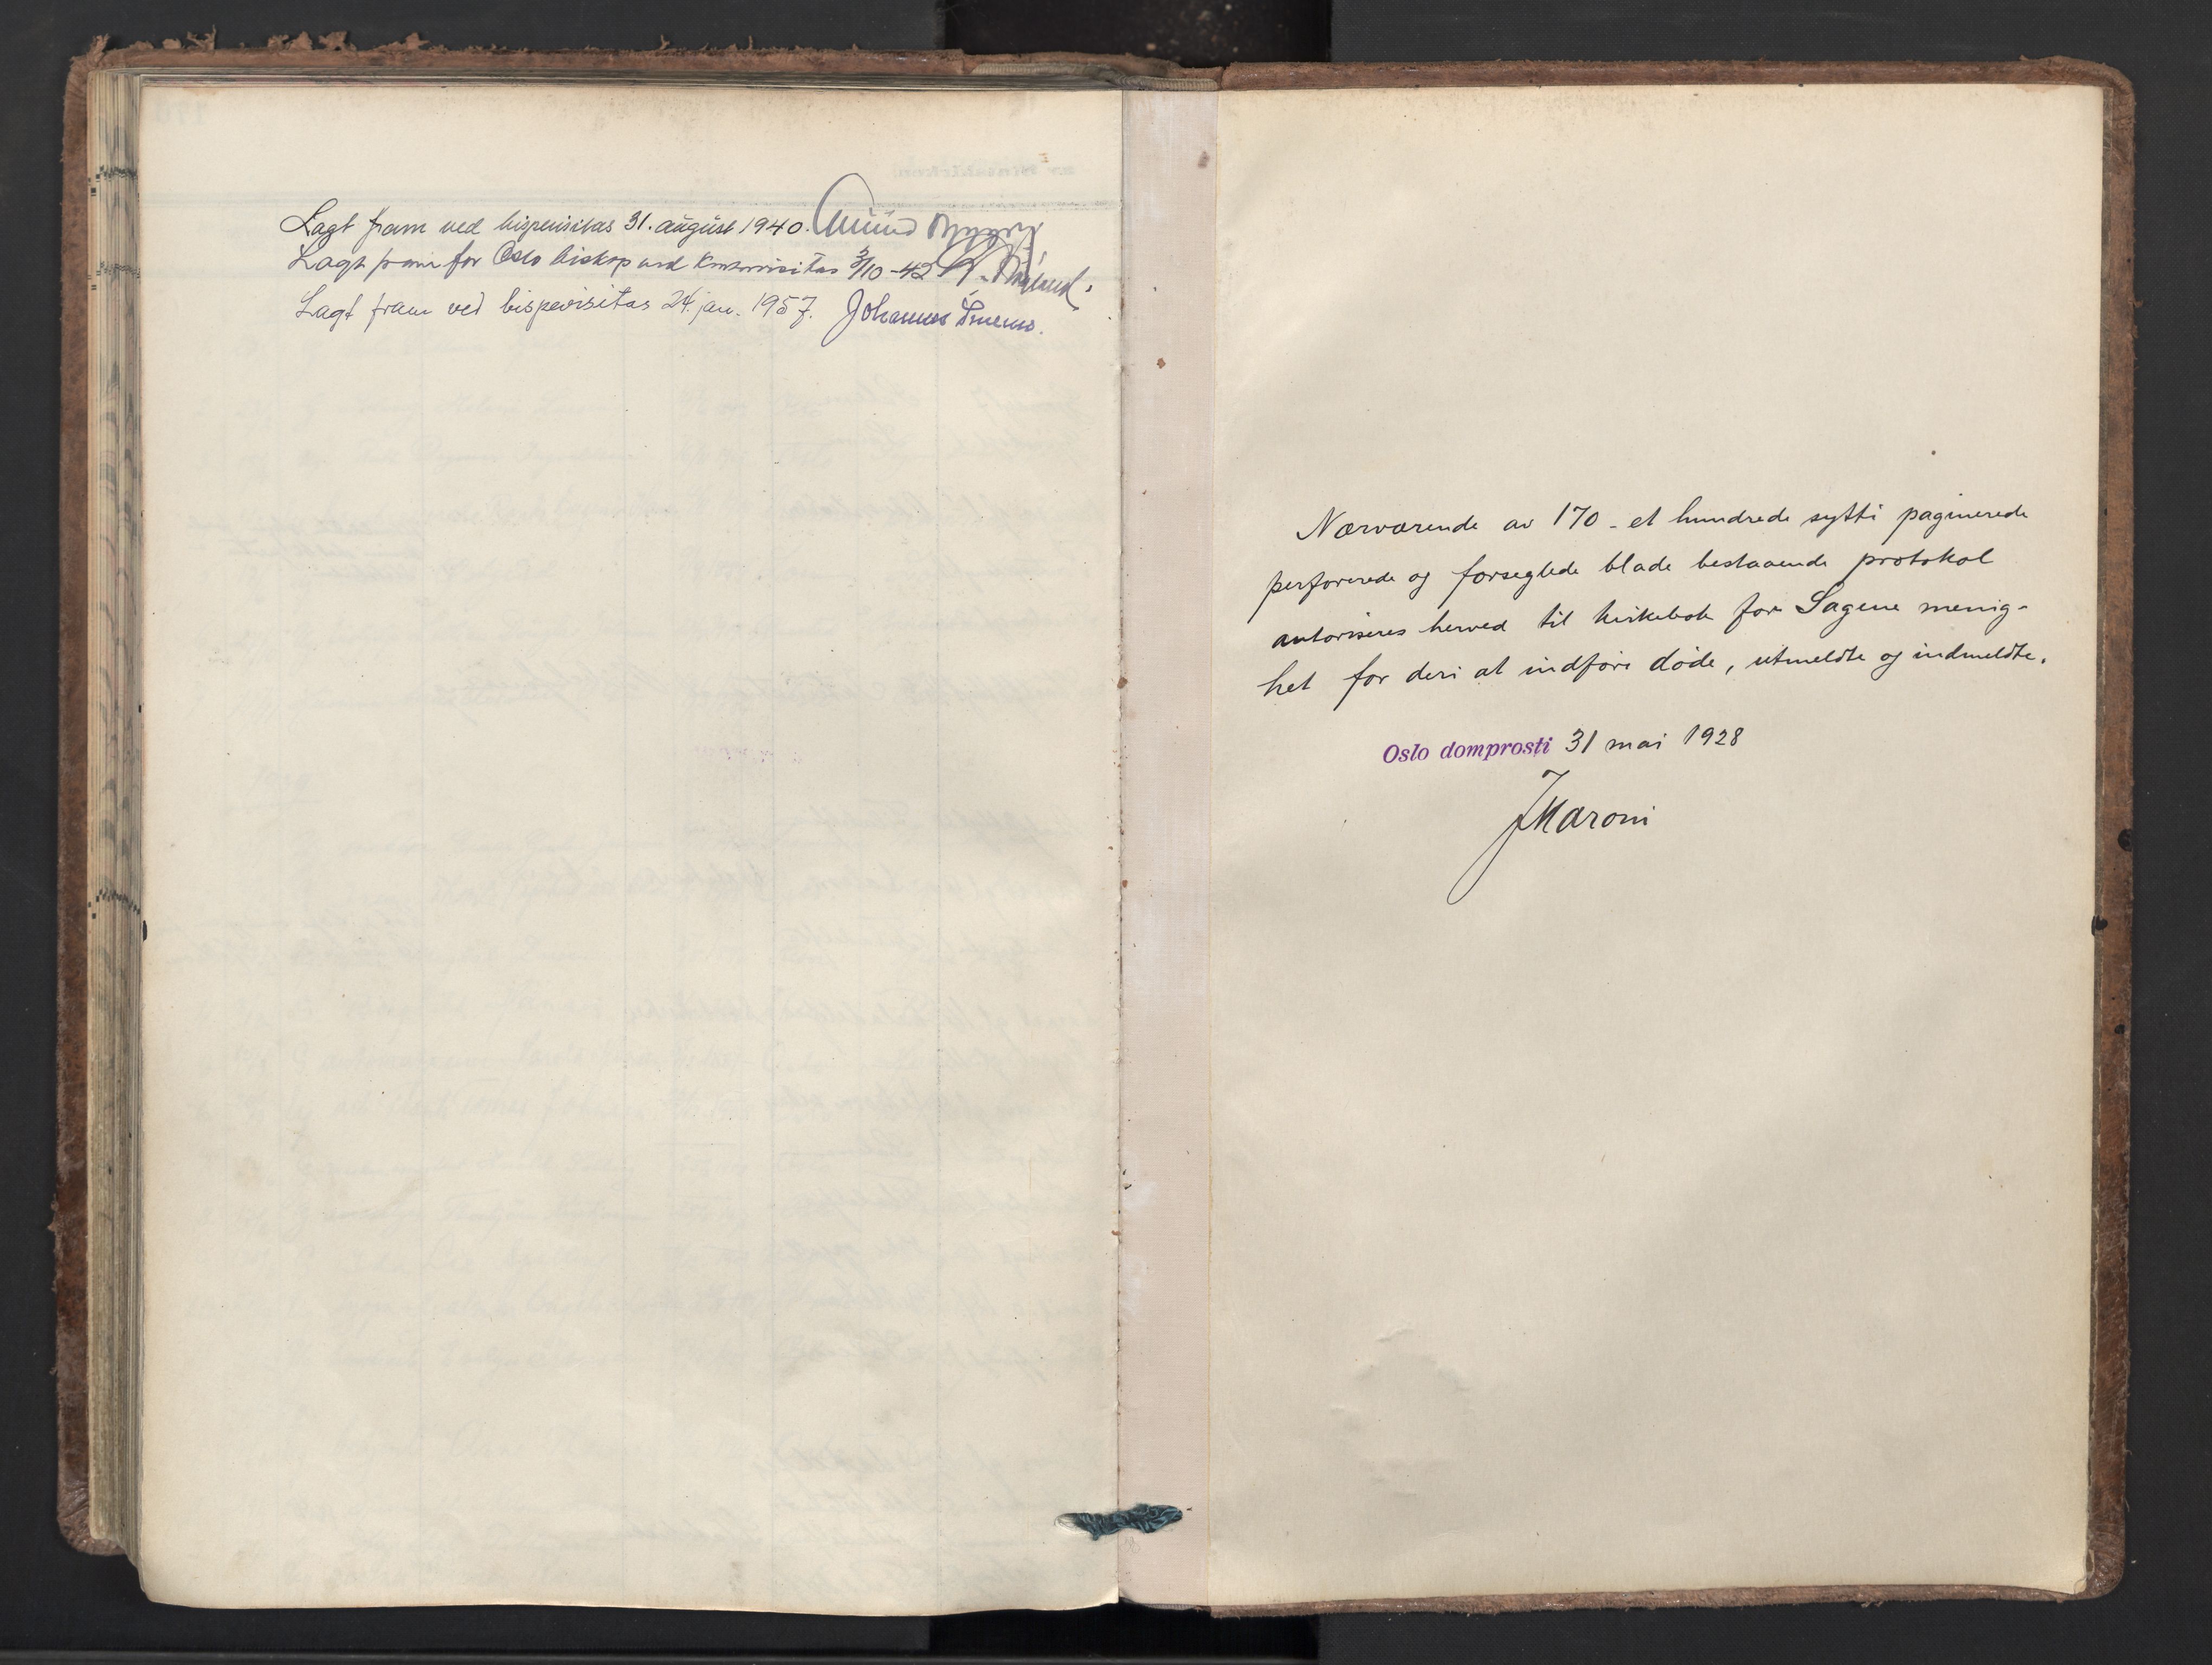 Lagt fram ved bispevisitas 31. august 1940.
Lagt fram for Oslo biskop ved 3/10-42
Lagt fram ved bispevisitas 24. jan. 1957. Johannes Smemo.
Nærværende av 170 - et hundrede sytti paginerede
perforerede og forseglede blade bestaaende protokol
autoriseres herved til kirkebok for Sagene menig-
het for deri at indføre døde, utmeldte og indmeldte.
Oslo domprosti 31 mai 1928
JMaroni